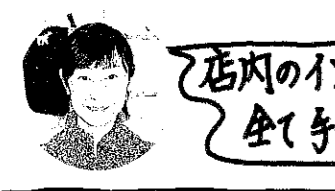 店内のイ
全て手